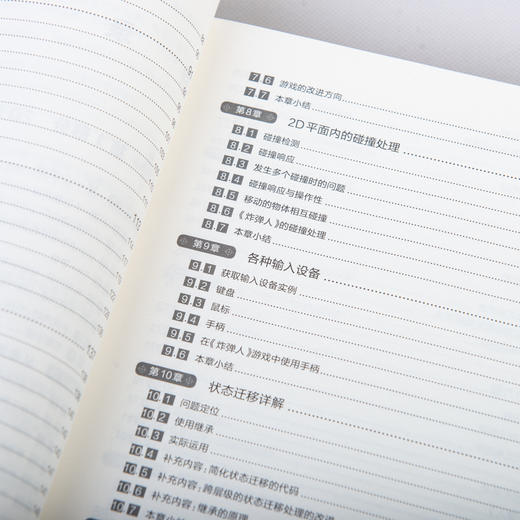 7.6 游戏的改进方向
7.7 本章小结
第8章 2D平面内的碰撞处理
8.1 碰撞检测
8.2 碰撞响应
8.3 发生多个碰撞时的问题
8.4 碰撞响应与操作性
8.5 移动的物体相互碰撞
8.6 《炸弹人》的碰撞处理
8.7 本章小结
第9章 各种输入设备
9.1 获取输入设备实例
9.2 键盘
9.3 鼠标
9.4 手柄
9.5 在《炸弹人》游戏中使用手柄
9.6 本章小结
第10章 状态迁移详解
10.1 问题定位
10.2 使用继承
10.3 实际运用
10.4 补充内容:简化状态迁移的代码
10.5 补充内容:跨层级的状态迁移处理的改进
10.6 补充内容:继承的原理
10.7 本章小结